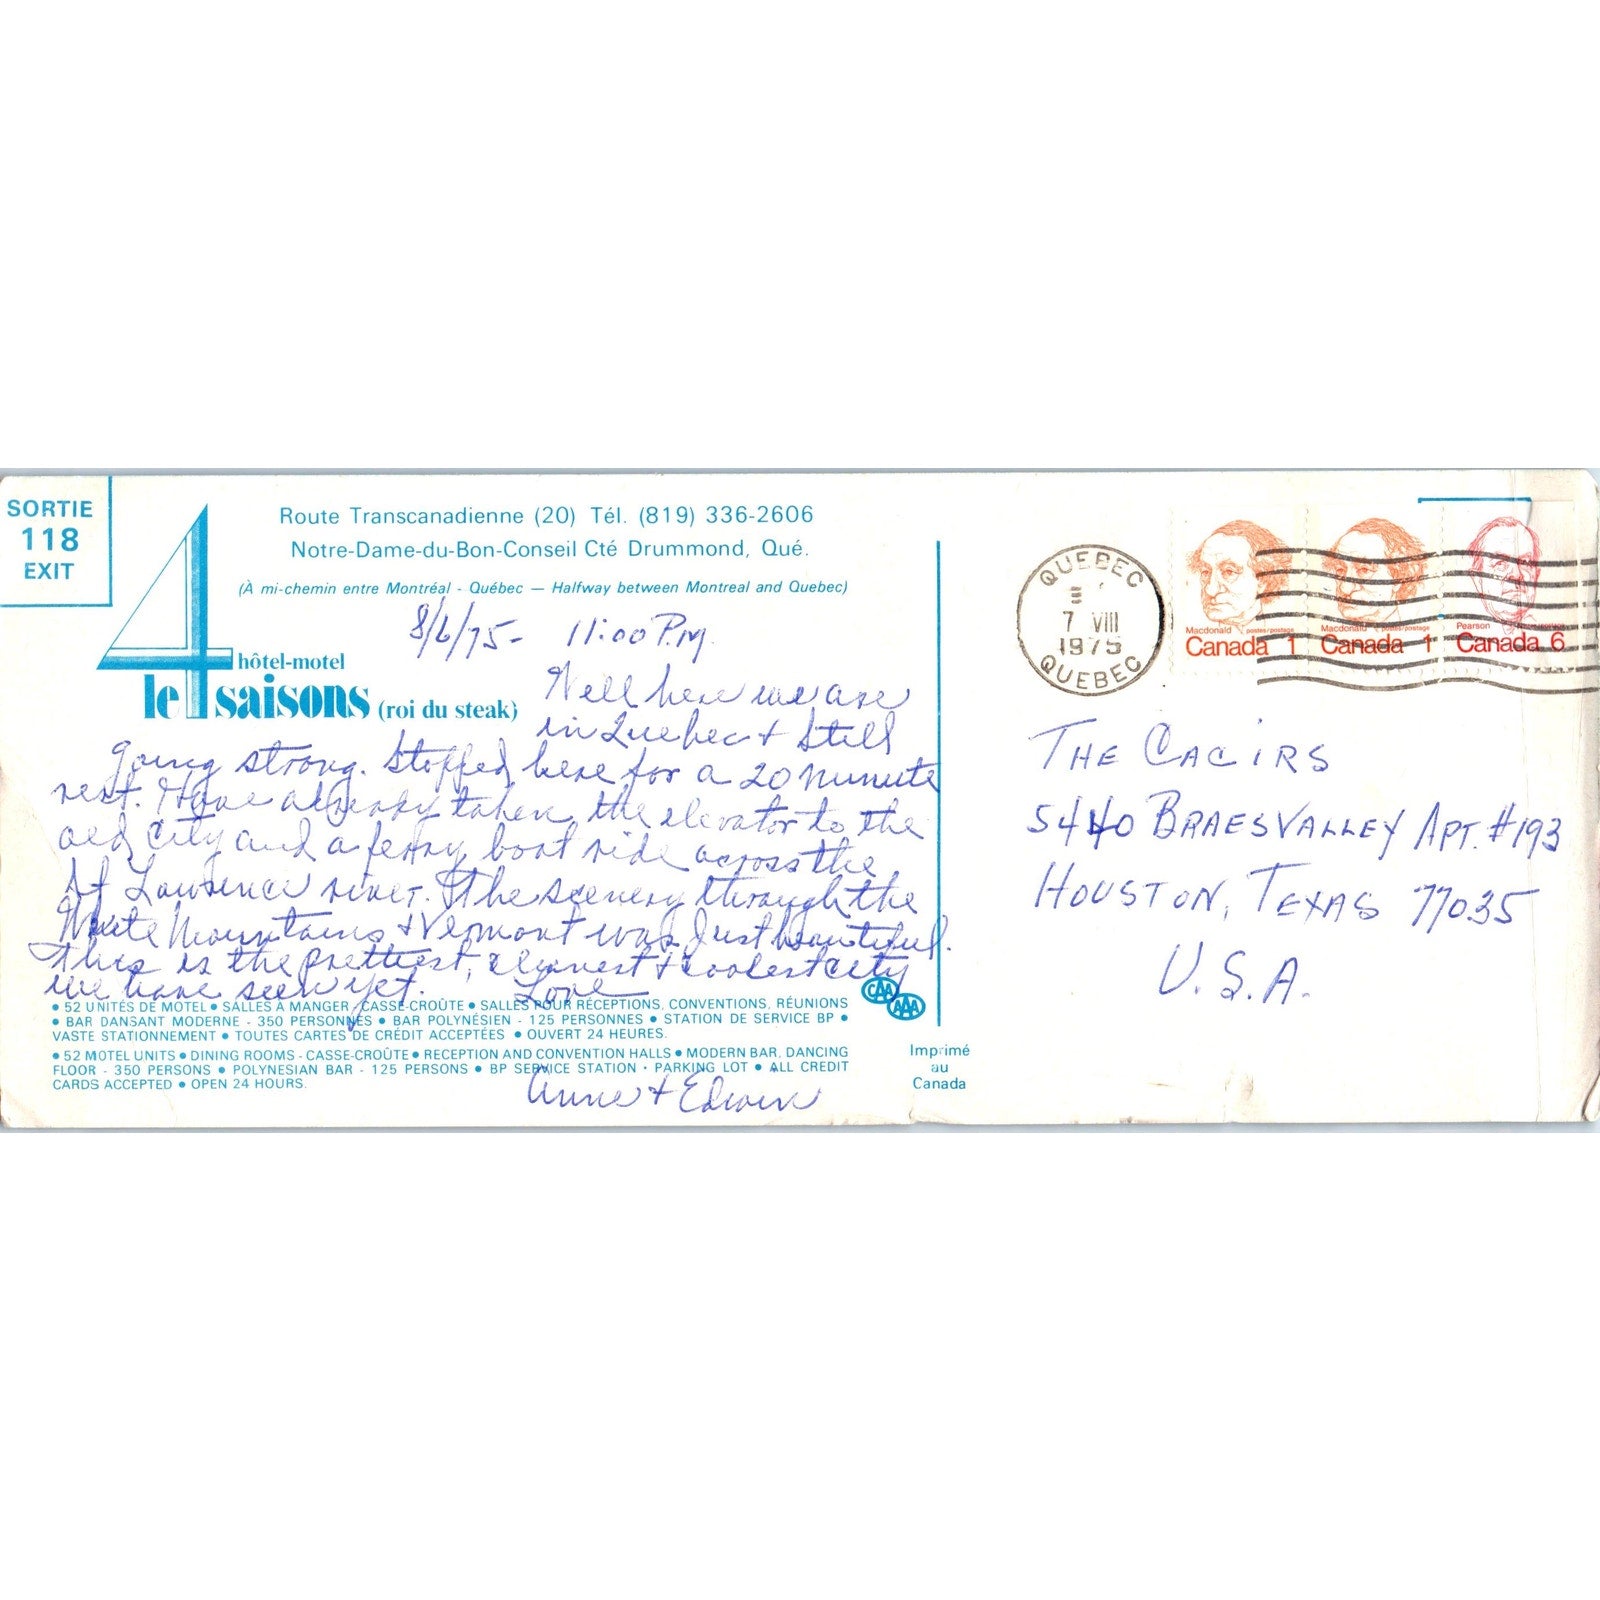 SORTIE
118
EXIT
Route Transcanadienne (20) Tél. (819) 336-2606
Notre-Dame-du-Bon-Conseil Cté Drummond, Qué.
(À mi-chemin entre Montréal - Québec — Halfway between Montreal and Quebec)
hôtel-motel
le 4 saisons (roi du steak)
8/6/75 - 11:00 P.M.
Well here we are
in Quebec & still
going strong. Stopped here for a 20 minute
rest. Have already taken the elevator to the
old city and a ferry boat ride across the
St Lawrence river. The scenery through the
White Mountains & Vermont was just beautiful.
This is the prettiest, cleanest & coolest city
we have seen yet. Love
• 52 UNITÉS DE MOTEL • SALLES À MANGER - CASSE-CROÛTE • SALLES POUR RÉCEPTIONS, CONVENTIONS, RÉUNIONS
• BAR DANSANT MODERNE - 350 PERSONNES • BAR POLYNÉSIEN - 125 PERSONNES • STATION DE SERVICE BP •
VASTE STATIONNEMENT • TOUTES CARTES DE CRÉDIT ACCEPTÉES • OUVERT 24 HEURES.
• 52 MOTEL UNITS • DINING ROOMS - CASSE-CROÛTE • RECEPTION AND CONVENTION HALLS • MODERN BAR, DANCING
FLOOR - 350 PERSONS • POLYNESIAN BAR - 125 PERSONS • BP SERVICE STATION - PARKING LOT • ALL CREDIT
CARDS ACCEPTED • OPEN 24 HOURS.
Anne & Edwin
CAA
AAA
Imprimé
au
Canada
QUEBEC
7 VIII
1975
QUEBEC
Macdonald postes/postage
Canada 1
Macdonald postes/postage
Canada 1
Pearson
Canada 6
THE CACIRS
5440 BRAESVALLEY APT. #193
HOUSTON, TEXAS 77035
U.S.A.